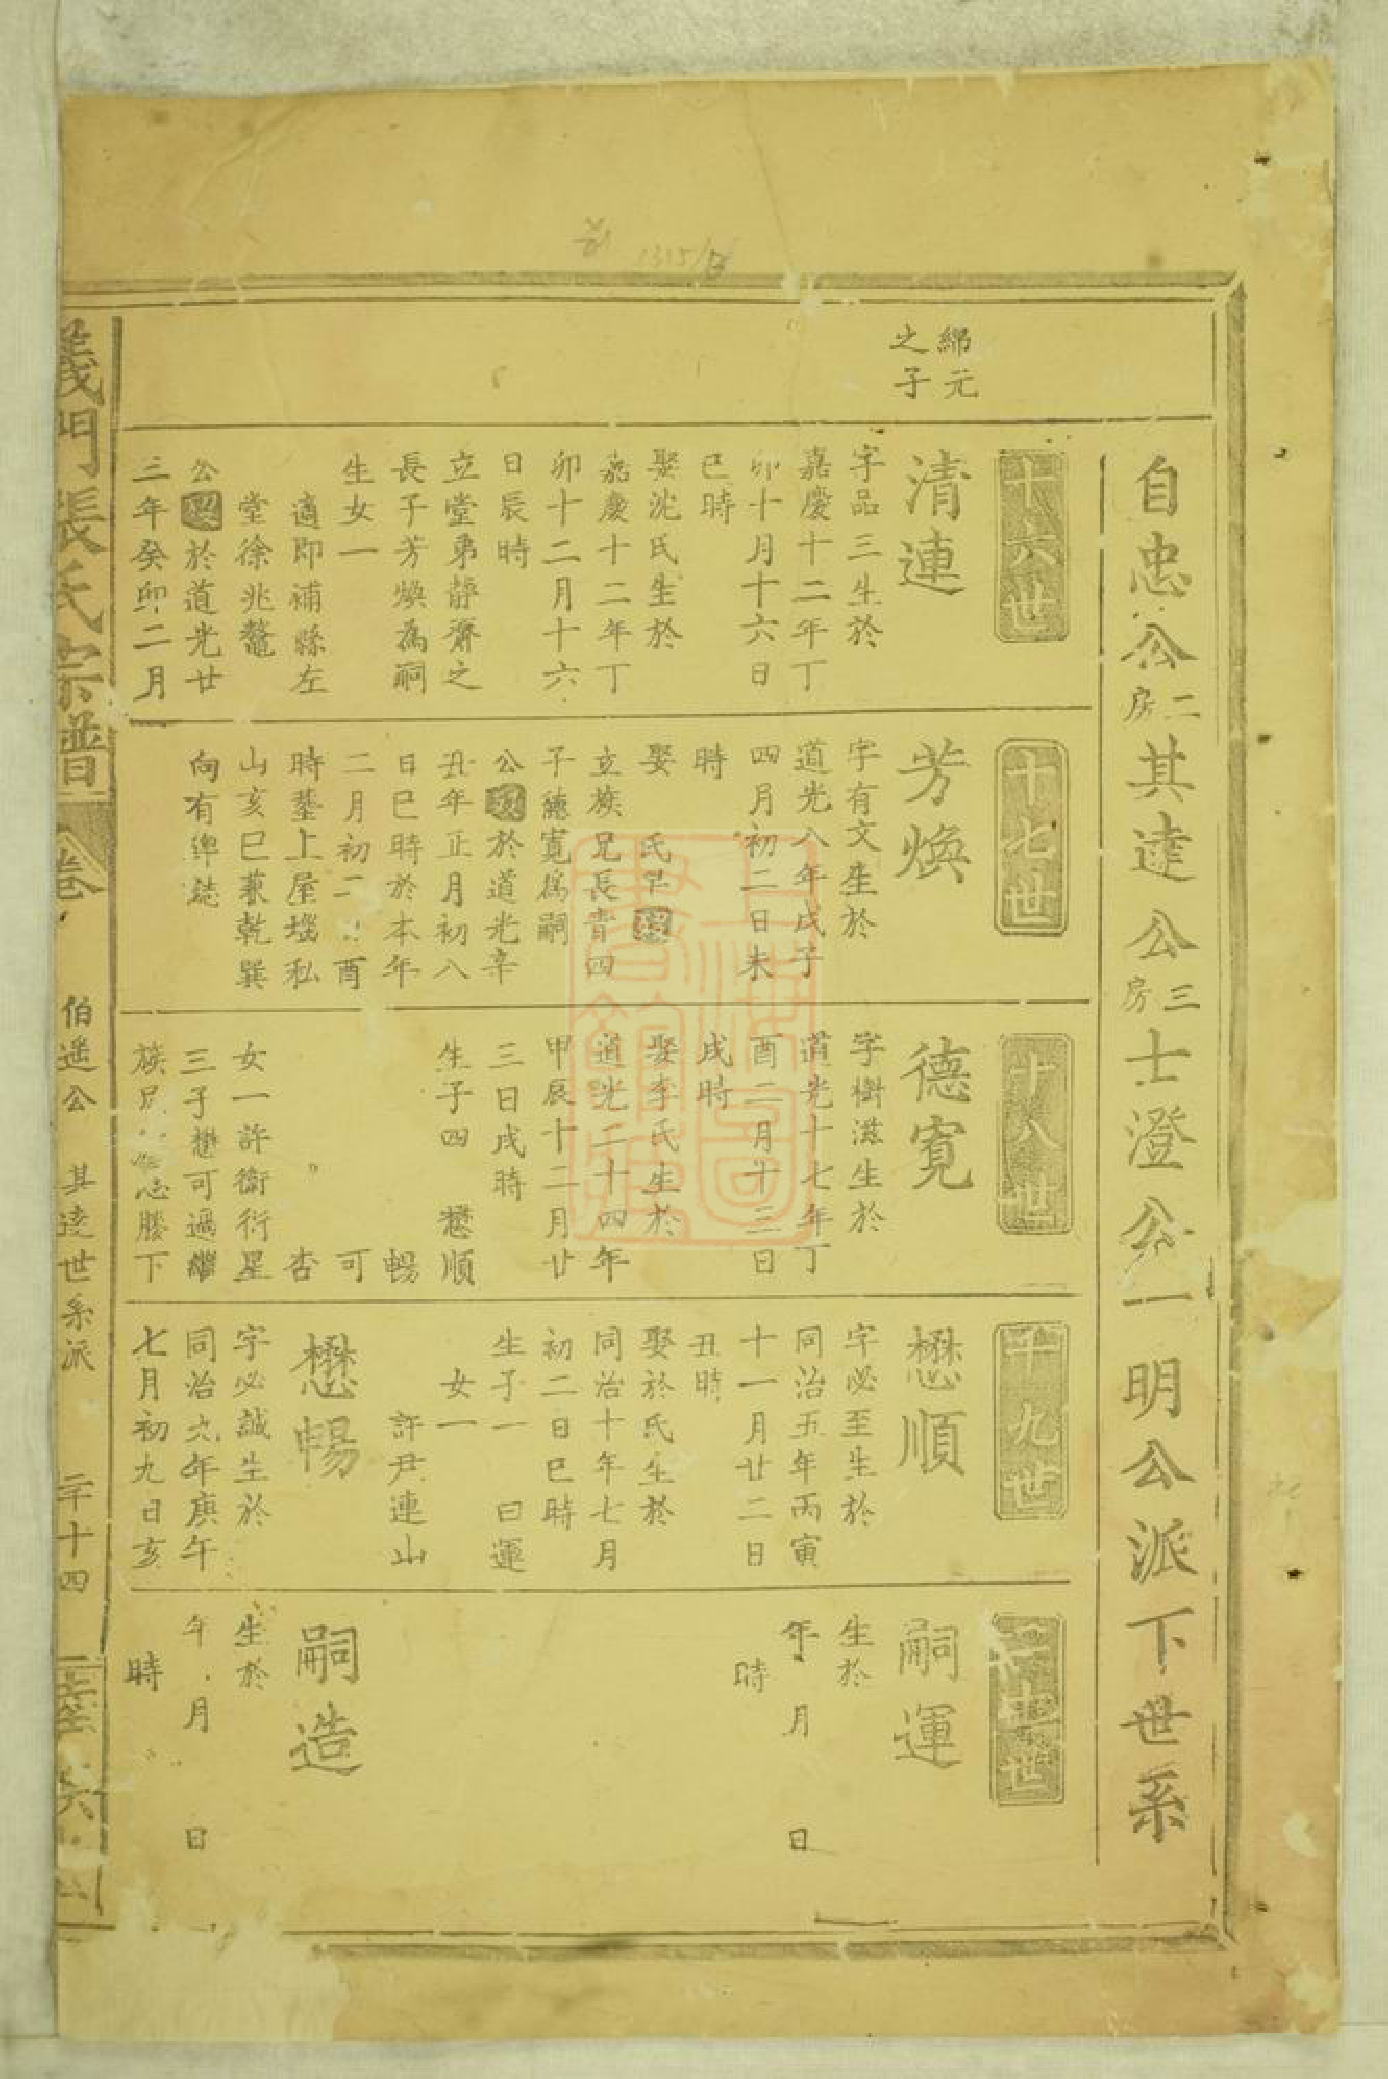 自忠公二房其達公三房士澄公一明公派下世系
綿元
之子
十六世
清連
字品三生於
嘉慶十二年丁
卯十月十六日
巳時
娶沈氏生於
嘉慶十二年丁
卯十二月十六
日辰時
立堂弟靜齋之
長子芳煥為嗣
生女一
適即補縣左
堂徐兆鼇
公歿於道光廿
三年癸卯二月
十七世
芳煥
字有文生於
道光八年戊子
四月初二日未
時
娶 氏早歿
立族兄長青四
子德寬為嗣
公歿於道光辛
丑年正月初八
日巳時於本年
二月初二 酉
時塟上屋塆私
山亥巳兼乾巽
向有碑誌
十八世
德寬
字樹滋生於
道光十七年丁
酉二月十三日
戌時
娶李氏生於
道光二十四年
甲辰十二月廿
三日戌時
生子四 懋順
暢
可
杏
女一許衞衍星
三子懋可過繼
族兄 勝下
十九世
懋順
字必至生於
同治五年丙寅
十一月廿二日
丑時
娶於氏生於
同治十年七月
初二日巳時
生子一 曰運
女一
許尹連山
懋暢
字必誠生於
同治六年庚午
七月初九日亥
世
嗣運
生於
年 月 日
時
嗣造
生於
年 月 日
時
義門張氏宗譜
卷
伯遥公 其達世系派
二十四